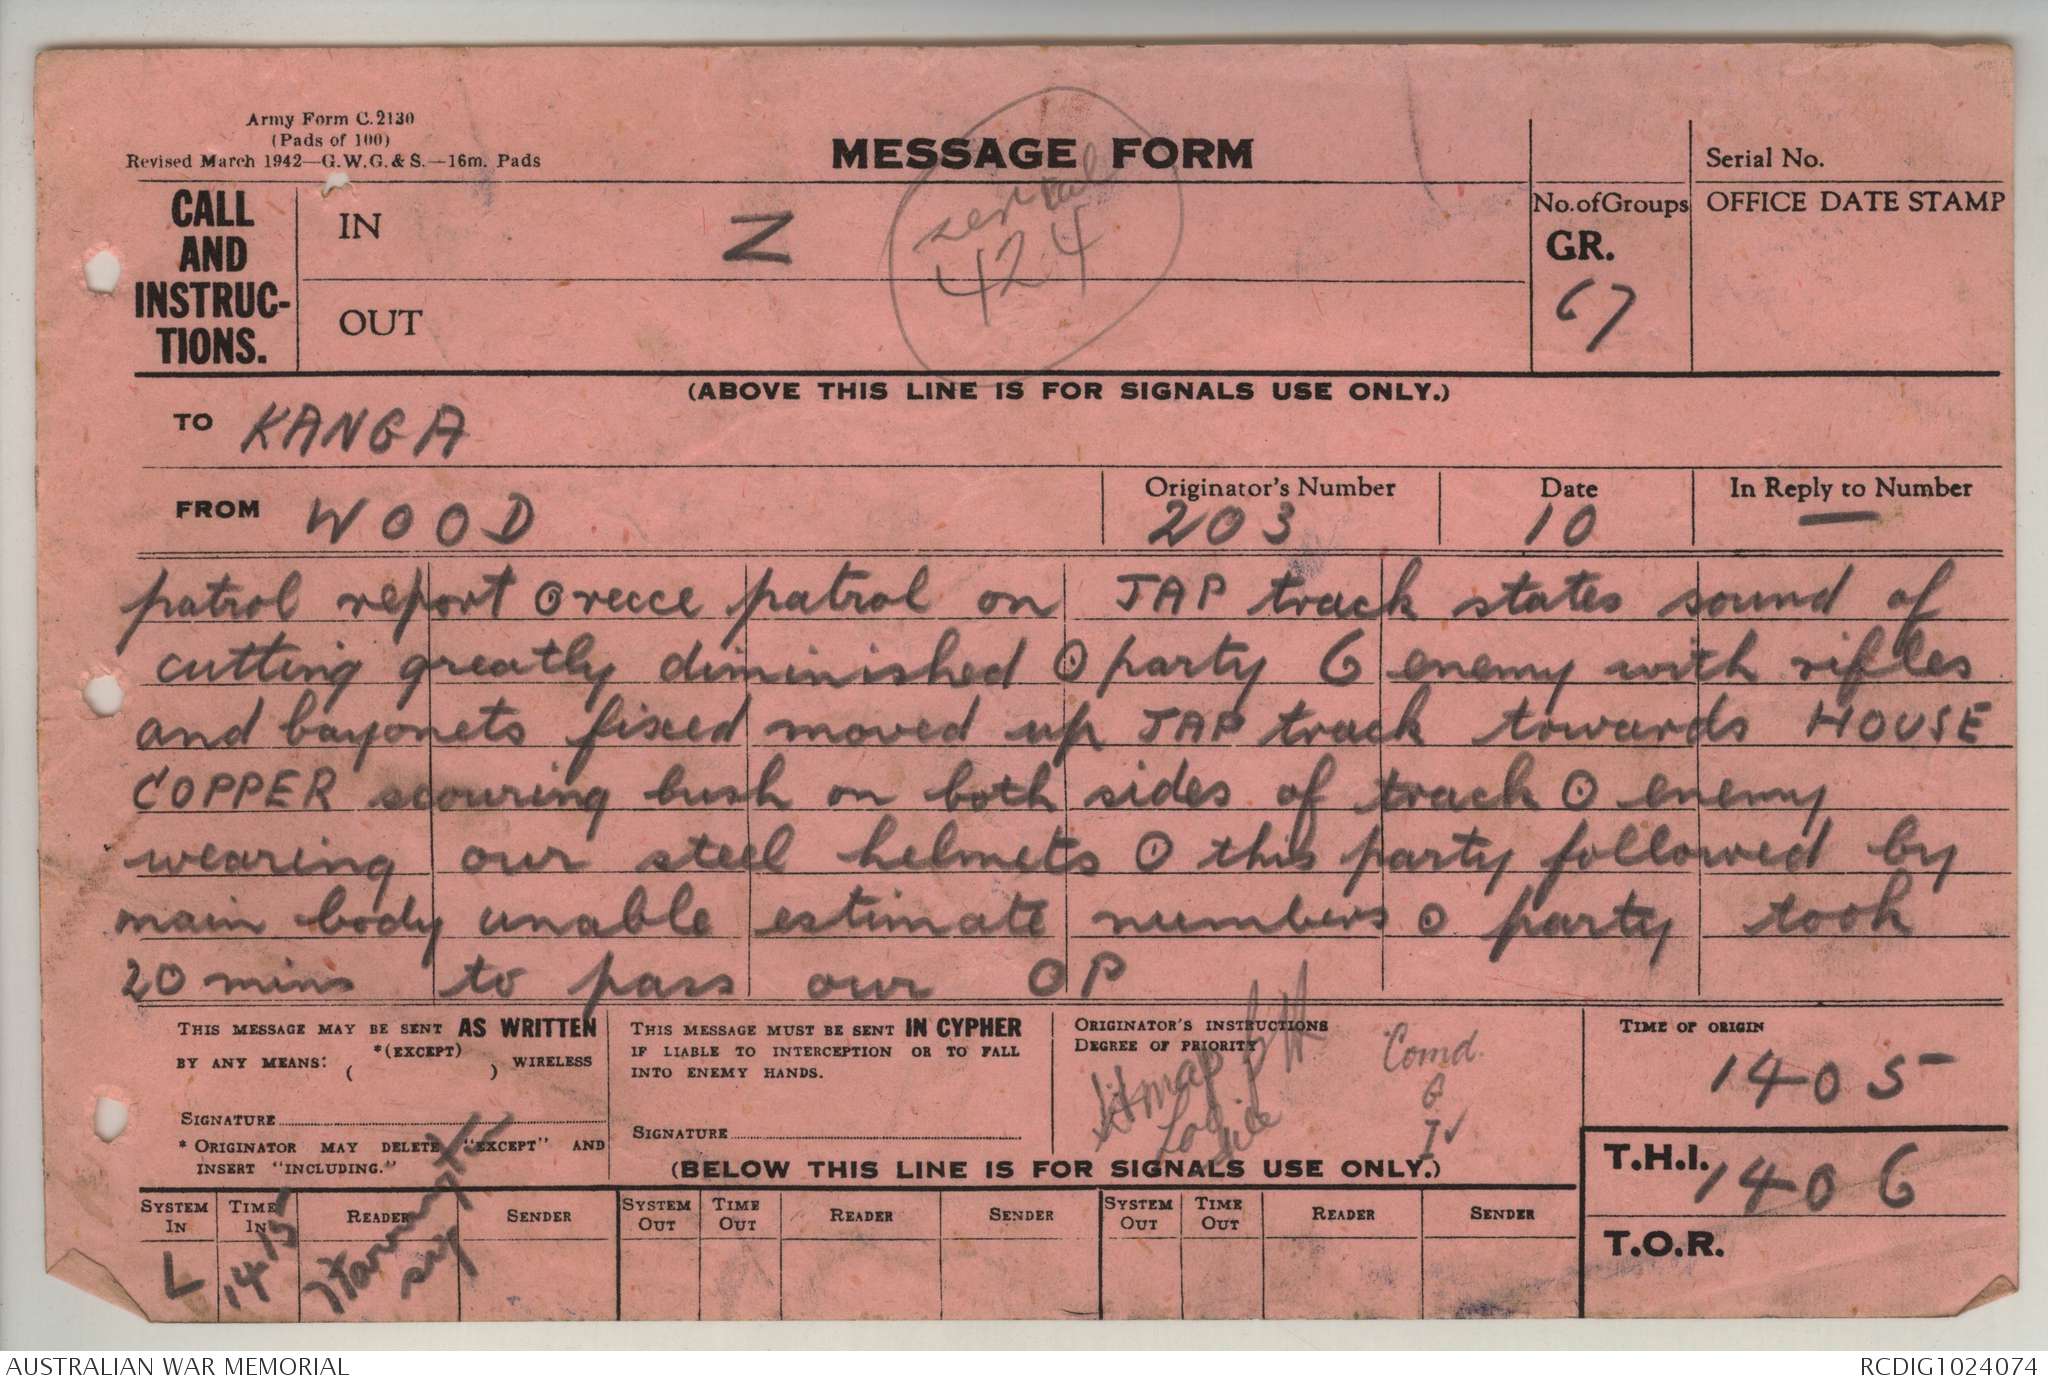 Army Form C.2130
(Pads of 100)
Revised March 1942—G.W.G.&S.—16m. Pads
MESSAGE FORM
Serial No.
CALL AND INSTRUC-TIONS.
IN
Z
serial
424
OUT
No.ofGroups
GR.
67
OFFICE DATE STAMP
(ABOVE THIS LINE IS FOR SIGNALS USE ONLY.)
TO KANGA
FROM WOOD
Originator's Number
203
Date
10
In Reply to Number
—
patrol report ⊙ recce patrol on JAP track states sound of
cutting greatly diminished ⊙ party 6 enemy with rifles
and bayonets fixed moved up JAP track towards HOUSE
COPPER scouring bush on both sides of track ⊙ enemy
wearing our steel helmets ⊙ this party followed by
main body unable estimate numbers ⊙ party took
20 mins to pass our OP
THIS MESSAGE MAY BE SENT AS WRITTEN
BY ANY MEANS: *(EXCEPT) ( ) WIRELESS
SIGNATURE
* ORIGINATOR MAY DELETE "EXCEPT" AND
INSERT "INCLUDING."
THIS MESSAGE MUST BE SENT IN CYPHER
IF LIABLE TO INTERCEPTION OR TO FALL
INTO ENEMY HANDS.
SIGNATURE
ORIGINATOR'S INSTRUCTIONS
DEGREE OF PRIORITY
Sitmap
Log
file
Comd.
G
I ✓
TIME OF ORIGIN
1405
T.H.I. 1406
T.O.R.
(BELOW THIS LINE IS FOR SIGNALS USE ONLY.)
SYSTEM IN
TIME IN
READER
SENDER
SYSTEM OUT
TIME OUT
READER
SENDER
SYSTEM OUT
TIME OUT
READER
SENDER
L
1415
sig
AUSTRALIAN WAR MEMORIAL
RCDIG1024074